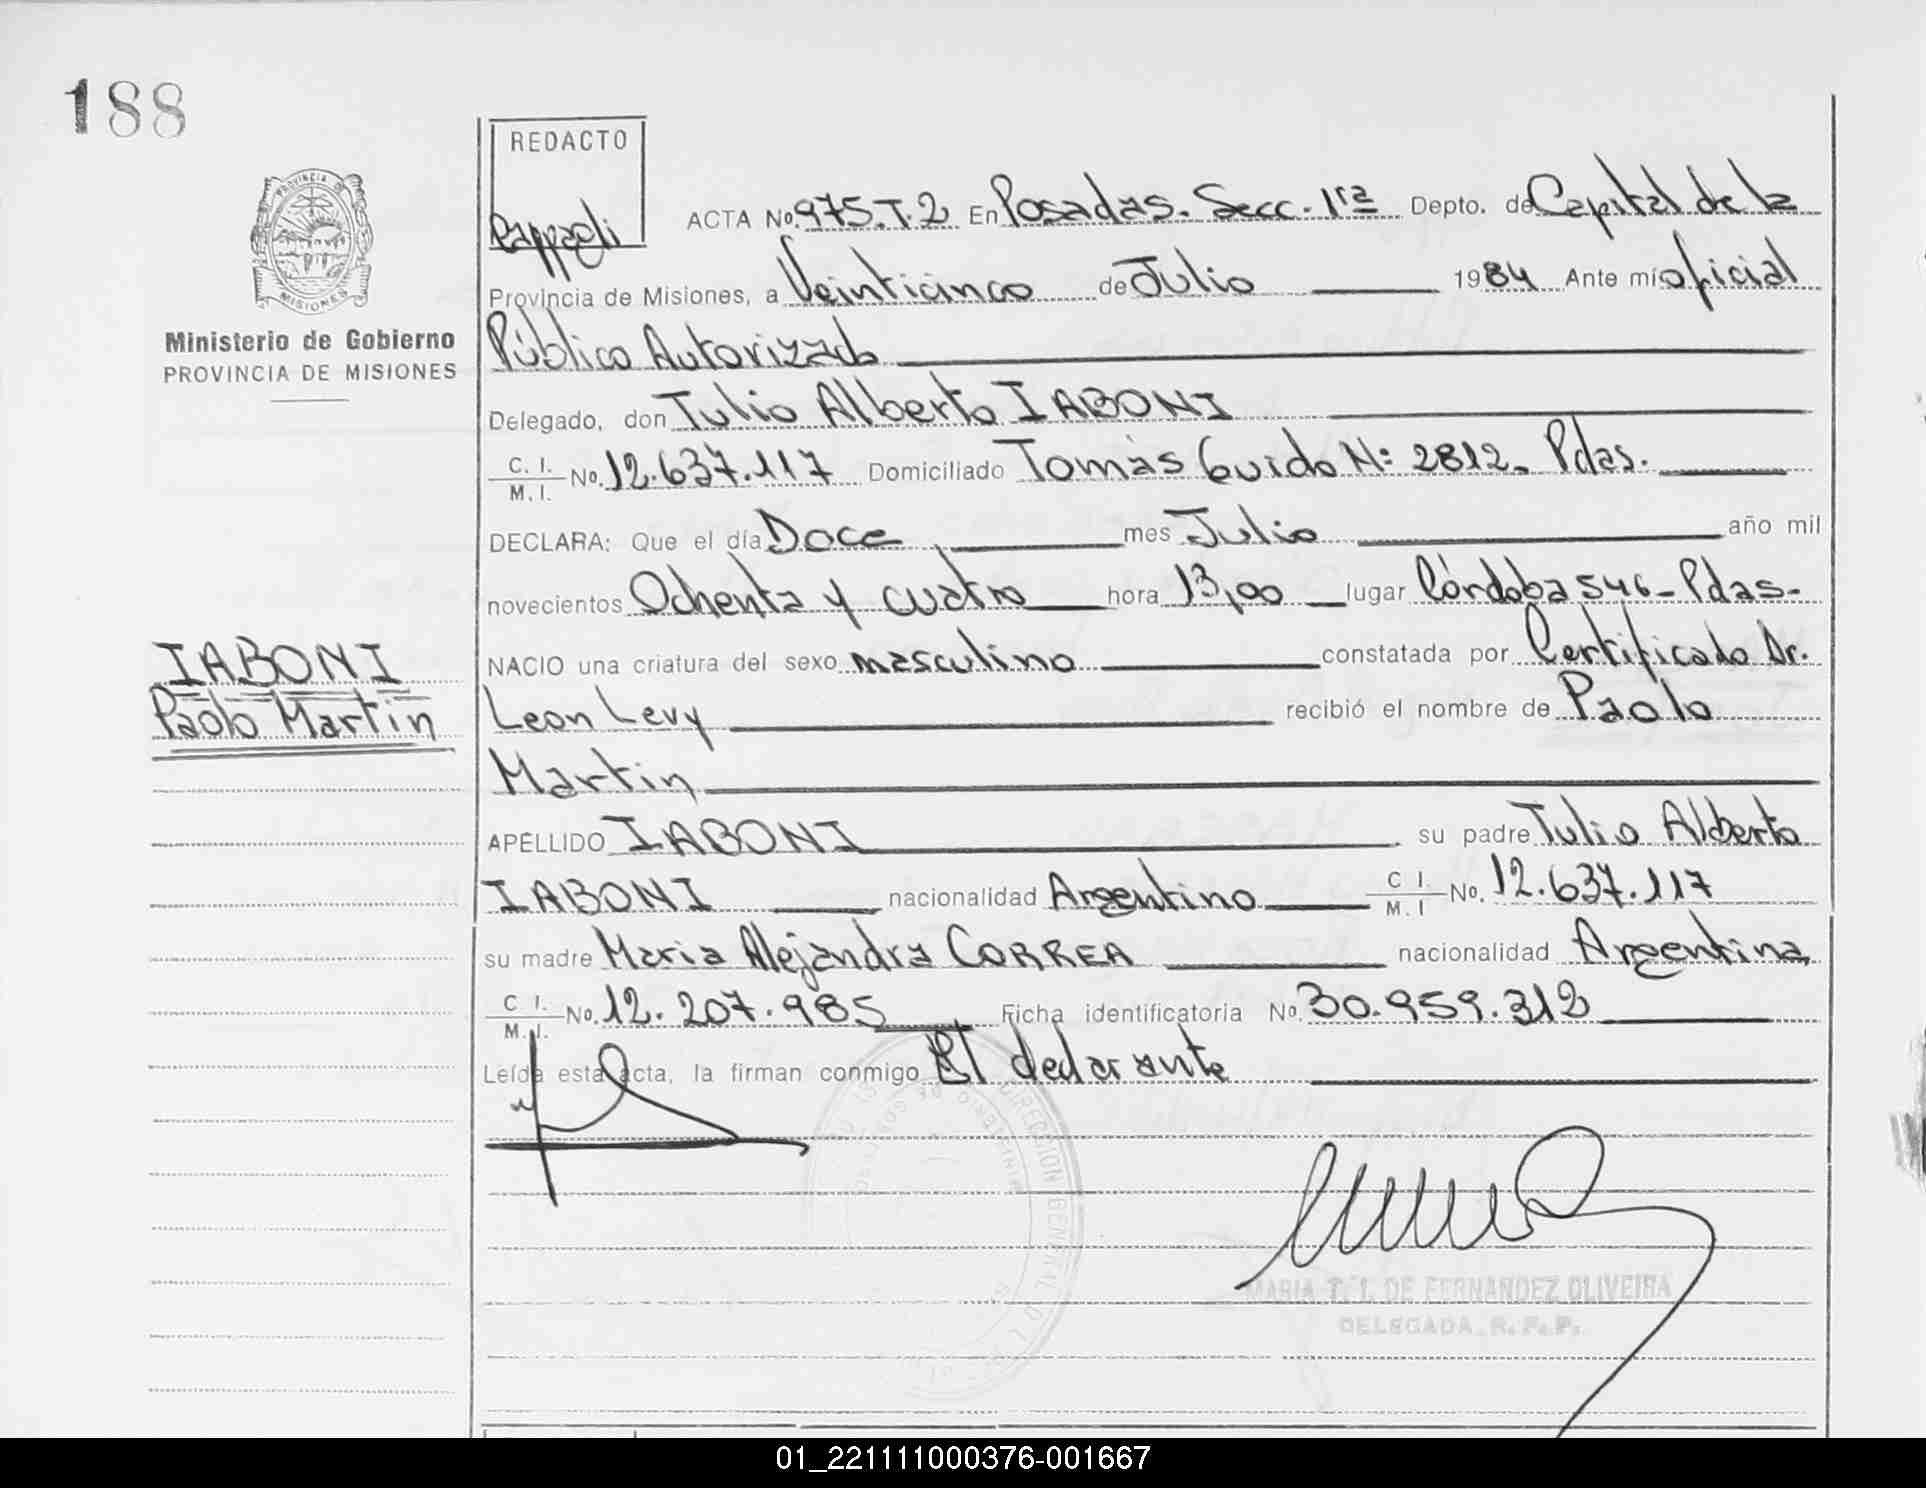 188
REDACTO
PROVINCIA DE
MISIONES
Ministerio de Gobierno
PROVINCIA DE MISIONES
ACTA No. 975.T.2 En Posadas. Secc. 1ra Depto. de Capital de la
Provincia de Misiones, a Veinticinco de Julio 1984 Ante mí oficial
Público Autorizado
Delegado, don Tulio Alberto IABONI
C. I.
M. I. No. 12.637.117 Domiciliado Tomás Guido N: 2812. Pdas.
DECLARA: Que el día Doce mes Julio año mil
novecientos Ochenta y cuatro hora 13,00 lugar Córdoba 546-Pdas-
NACIO una criatura del sexo masculino constatada por Certificado Dr.
Leon Levy recibió el nombre de Paolo
Martin
IABONI
Paolo Martin
APELLIDO IABONI su padre Tulio Alberto
IABONI nacionalidad Argentino C I.
M. I No. 12.637.117
su madre Maria Alejandra CORREA nacionalidad Argentina
C I.
M. I. No. 12.207.985 Ficha identificatoria No. 30.959.312
Leída esta acta, la firman conmigo El declarante
DIRECCION GENERAL DEL
MINISTERIO DE GOBIERNO
MARIA T. I. DE FERNANDEZ OLIVEIRA
DELEGADA R. P. P.
01_221111000376-001667